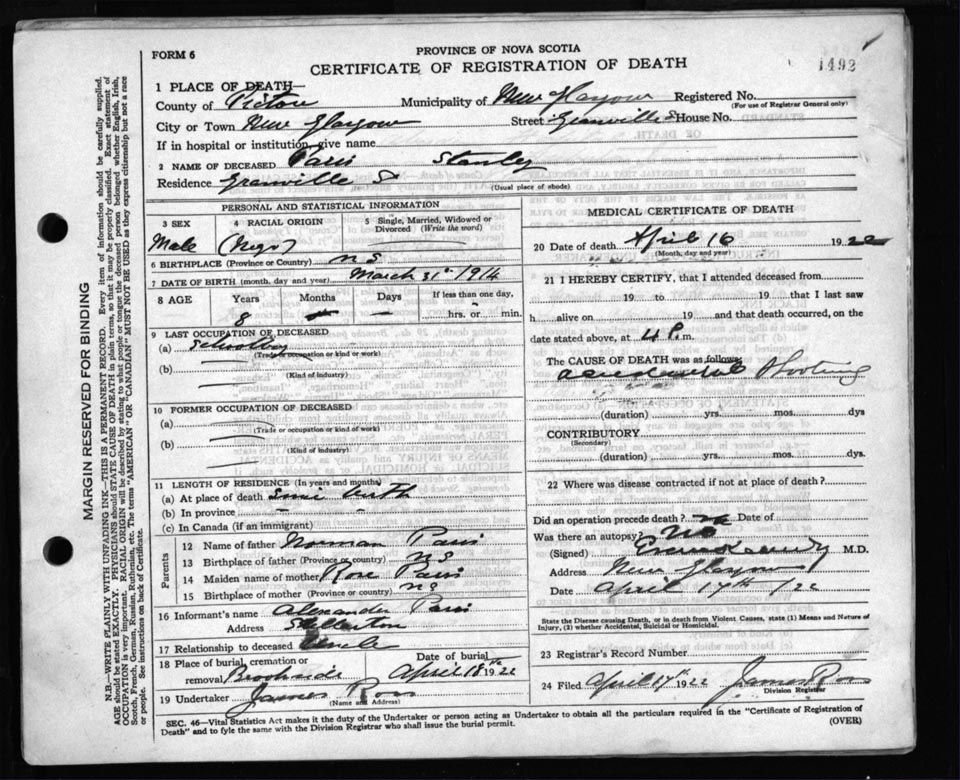 FORM 6
PROVINCE OF NOVA SCOTIA
CERTIFICATE OF REGISTRATION OF DEATH
1492
1 PLACE OF DEATH—
County of Pictou Municipality of New Glasgow Registered No.
(For use of Registrar General only)
City or Town New Glasgow Street Granville St House No.
If in hospital or institution, give name
2 NAME OF DECEASED Paris Stanley
Residence Granville St
(Usual place of abode)
PERSONAL AND STATISTICAL INFORMATION
3 SEX
Male
4 RACIAL ORIGIN
(Negro)
5 Single, Married, Widowed or Divorced (Write the word)
6 BIRTHPLACE (Province or Country) N S
7 DATE OF BIRTH (month, day and year) March 31st 1914
8 AGE Years Months Days If less than one day,
8 – – hrs. or min.
9 LAST OCCUPATION OF DECEASED
(a) Schoolboy
(Trade or occupation or kind or work)
(b)
(Kind of industry)
10 FORMER OCCUPATION OF DECEASED
(a)
(Trade or occupation or kind or work)
(b)
(Kind of industry)
11 LENGTH OF RESIDENCE (In years and months)
(a) At place of death Since birth
(b) In province – –
(c) In Canada (if an immigrant)
Parents
12 Name of father Norman Paris
13 Birthplace of father (Province or country) N S
14 Maiden name of mother Rose Paris
15 Birthplace of mother (Province or country) N S
16 Informant's name Alexander Paris
Address Stellarton
17 Relationship to deceased Uncle
18 Place of burial, cremation or removal Brookside
Date of burial April 18th 1922
19 Undertaker James Ross
(Name and Address)
MEDICAL CERTIFICATE OF DEATH
20 Date of death April 16 1922
(Month, day and year)
21 I HEREBY CERTIFY, that I attended deceased from
19 to 19 that I last saw
h alive on 19 and that death occurred, on the
date stated above, at 4 P. m.
The CAUSE OF DEATH was as follows:
accidental Shooting
(duration) yrs. mos. dys
CONTRIBUTORY
(Secondary)
(duration) yrs. mos. dys.
22 Where was disease contracted if not at place of death?
Did an operation precede death? no Date of
Was there an autopsy? No
(Signed) Kennedy M.D.
Address New Glasgow
Date April 17th /22
State the Disease causing Death, or in death from Violent Causes, state (1) Means and Nature of Injury, (2) whether Accidental, Suicidal or Homicidal.
23 Registrar's Record Number
24 Filed April 17th 1922 James Ross
Division Registrar
SEC. 46—Vital Statistics Act makes it the duty of the Undertaker or person acting as Undertaker to obtain all the particulars required in the "Certificate of Registration of
Death" and to fyle the same with the Division Registrar who shall issue the burial permit.
(OVER)
MARGIN RESERVED FOR BINDING
N.B.—WRITE PLAINLY WITH UNFADING INK—THIS IS A PERMANENT RECORD. Every item of information should be carefully supplied.
AGE should be stated EXACTLY. PHYSICIANS should STATE CAUSE OF DEATH in plain terms, so that it may be properly classified. Exact statement of
OCCUPATION is very important. RACIAL ORIGIN will be described by stating to what people or tongue the deceased person belonged whether English, Irish,
Scotch, French, German, Russian, Ruthenian, etc. The terms "AMERICAN" or "CANADIAN" MUST NOT BE USED as they express citizenship but not a race
or people. See instructions on back of Certificate.